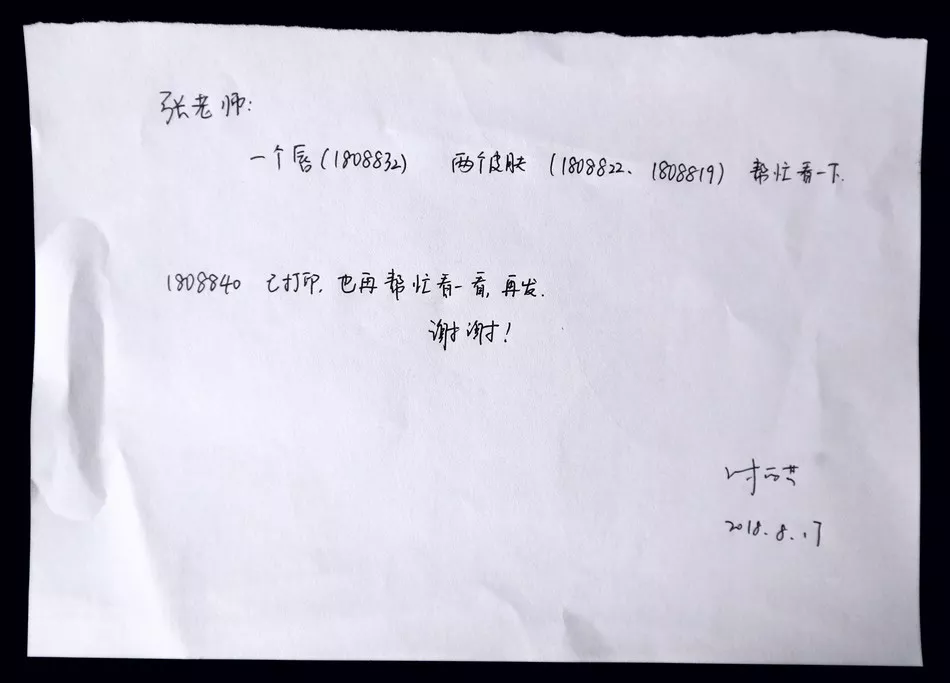 张老师:
一个唇(1808832) 两个皮肤(1808822、1808819)帮忙看一下.
1808840 已打印,也再帮忙看一看,再发.
谢谢!
2018.8.17